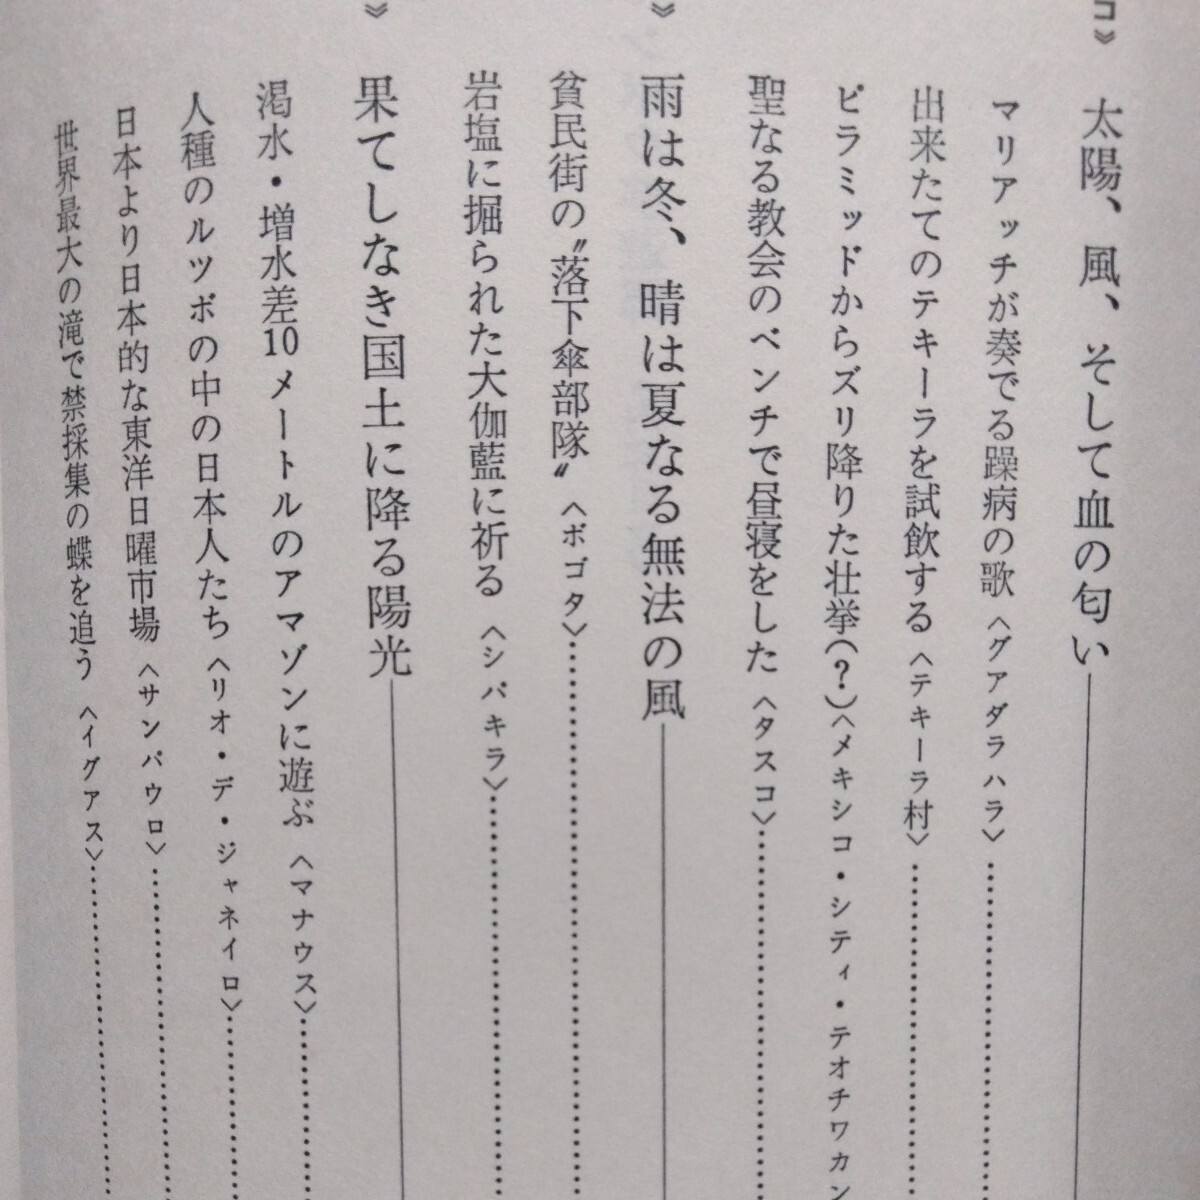 コ》 太陽、風、そして血の匂い
マリアッチが奏でる躁病の歌〈グアダラハラ〉
出来たてのテキーラを試飲する〈テキーラ村〉
ピラミッドからズリ降りた壮挙(?)〈メキシコ・シティ・テオチワカン
聖なる教会のベンチで昼寝をした〈タスコ〉
》 雨は冬、晴は夏なる無法の風
貧民街の〝落下傘部隊〟〈ボゴタ〉
岩塩に掘られた大伽藍に祈る〈シパキラ〉
》 果てしなき国土に降る陽光
渇水・増水差10メートルのアマゾンに遊ぶ〈マナウス〉
人種のルツボの中の日本人たち〈リオ・デ・ジャネイロ〉
日本より日本的な東洋日曜市場〈サンパウロ〉
世界最大の滝で禁採集の蝶を追う〈イグアス〉